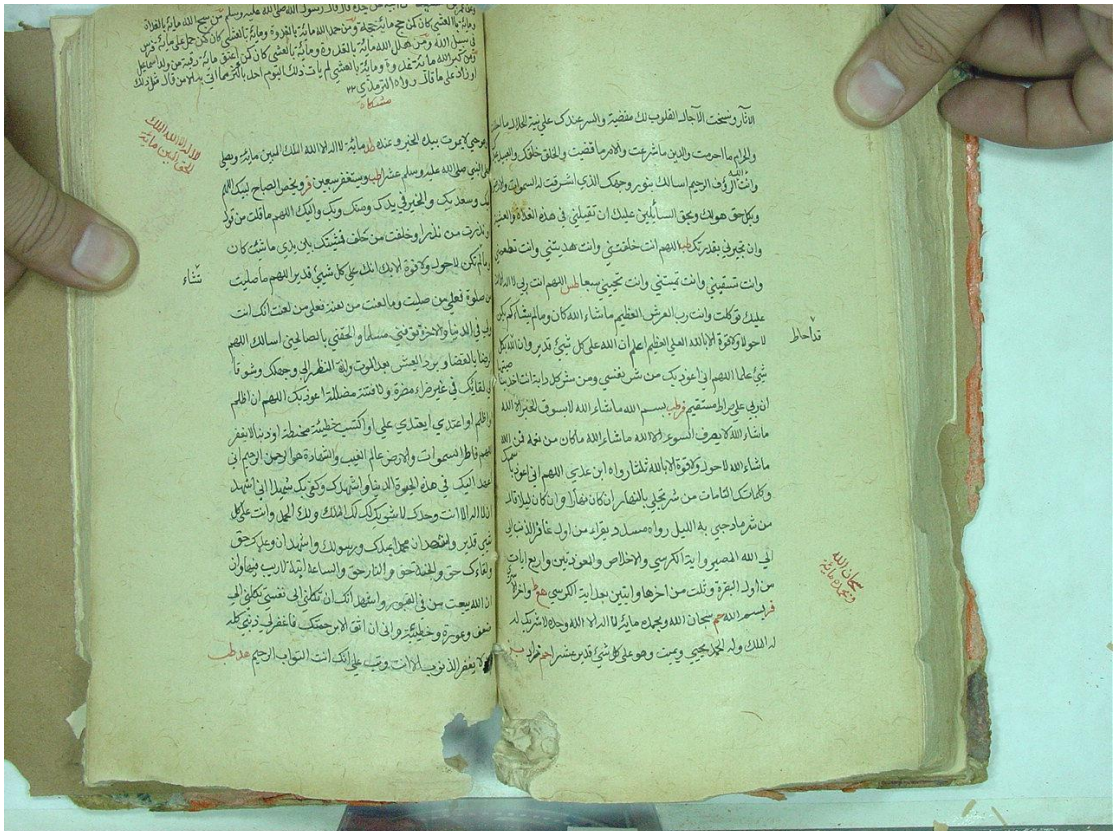 الآثار ونسخت الآجال القلوب لك مفضية والسر عندك علانية الحلال ما
والحرام ما حرمت والدين ما شرعت والامر ما قضيت والخلق خلقك والعبد
وانت الله الرؤف الرحيم اسالك بنور وجهك الذي اشرقت له السموات
وبكل حق هو لك وبحق السائلين عليك ان تقيلني في هذه الغداة
وان تجيرني بقدرتك طب اللهم انت خلقتني وانت هديتني وانت تطعمني
وانت تسقيني وانت تميتني وانت تحييني سبعا طس اللهم انت ربي لا اله الا
عليك توكلت وانت رب العرش العظيم ما شاء الله كان وما لم يشاء لم يكن
لا حول ولا قوة الا بالله العلي العظيم اعلم ان الله على كل شيئ قدير وان الله بكل
قد احاط
شيئ علما اللهم اني اعوذ بك من شر نفسي ومن شر كل دابة انت اخذ
ان ربي على صراط مستقيم بسم الله ما شاء الله لا يسوق الخير الا الله
ما شاء الله لا يصرف السوء الا الله ما شاء الله ما كان من نعمة فمن الله
ما شاء الله لا حول ولا قوة الا بالله ثلثا رواه ابن عدي اللهم اني اعوذ
وكلماتك التامات من شر ان كان نهارا وان كان ليلا قال
من شر ما دجى به الليل رواه مسدد ويقراء من اول غافر الذنب
الى الله المصير واية الكرسي والاخلاص والمعوذتين واربع ايات
من اول البقرة وثلث من اخرها وايتين بعد اية الكرسي
بسم الله سبحان الله وبحمده مائة لا اله الا الله وحده لا شريك له
له الملك وله الحمد يحيي ويميت وهو على كل شيئ قدير عشرا
سبحان الله
وبحمده مائة
في سبيل الله ومن هلل الله مائة بالغدوة ومائة بالعشي كان كمن اعتق مائة رقبة من ولد اسماعيل
ومن كبر الله مائة بالغدوة ومائة بالعشي لم يات في ذلك اليوم احد باكثر مما اتى به الا من قال مثل ذلك
او زاد على ما قال رواه الترمذي
مشكاة
لا اله الا الله الملك
الحق المبين مائة
حي لا يموت بيدك الخير وعنده مائة لا اله الا الله الملك المبين مائة ويصلي
النبي صلى الله عليه وسلم عشرا طب ويستغفر سبعين ويخص الصباح لبيك اللهم
لبيك وسعديك والخير في يديك ومنك وبك واليك اللهم ما قلت من قول
او نذرت من نذر او حلفت من حلف فمشيتك بين يدي ما شئت كان
وما لم تكن لا حول ولا قوة الا بك انك على كل شيئ قدير اللهم ما صليت
تشاء
من صلوة فعلى من صليت وما لعنت من لعنة فعلى من لعنت انك انت
في الدنيا والاخرة توفني مسلما والحقني بالصالحين اسالك اللهم
الرضا بالقضا وبرد العيش بعد الموت ولذة النظر الى وجهك وشوقا
الى لقائك في غير ضراء مضرة ولا فتنة مضلة اعوذ بك اللهم ان اظلم
او اظلم او اعتدي او يعتدى علي او اكتسب خطيئة محبطة او ذنبا لا يغفر
اللهم فاطر السموات والارض عالم الغيب والشهادة
اعهد اليك في هذه الحيوة الدنيا واشهدك وكفى بك شهيدا اني اشهد
ان لا اله الا انت وحدك لا شريك لك لك الملك ولك الحمد وانت على كل
شيئ قدير واشهد ان محمدا عبدك ورسولك واشهد ان وعدك حق
ولقاءك حق والجنة حق والنار حق والساعة آتية لا ريب فيها وان
ان الله يبعث من في القبور واشهد انك ان تكلني الى نفسي تكلني الى
ضعف وعورة وخطيئة واني ان اثق الا برحمتك فاغفر لي ذنبي كله
لا يغفر الذنوب الا انت وتب علي انك انت التواب الرحيم